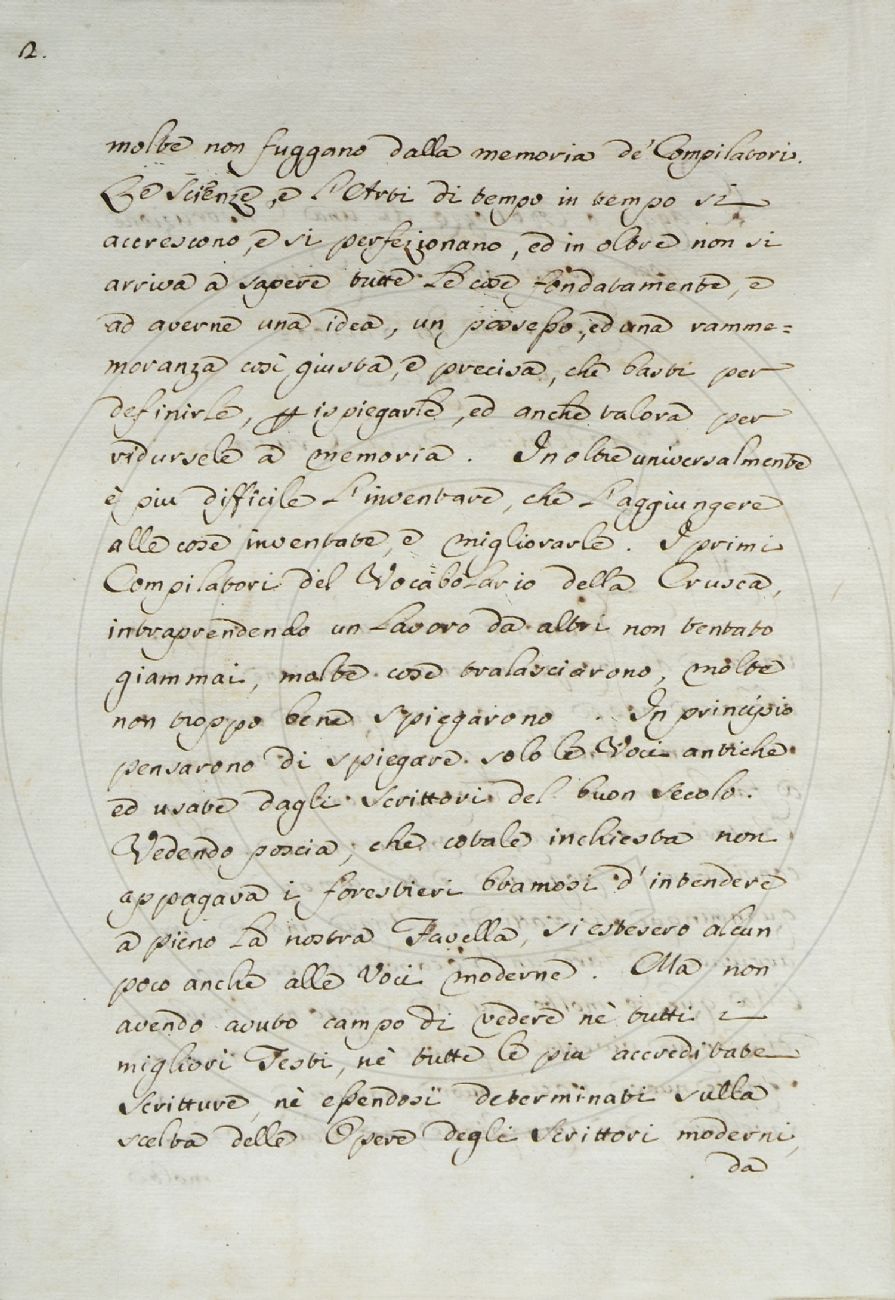 2.
molte non fuggano dalla memoria de' Compilatori.
Le Scienze, e l'Arti di tempo in tempo si
accrescono, e si perfezionano, ed in oltre non si
arriva a sapere tutte le cose fondatamente, e
ad averne una idea, un possesso, ed una ramme=
moranza così giusta, e precisa, che basti per
definirle, ispiegarle, ed anche talora per
ridursele a memoria. In oltre universalmente
è piu difficile l'inventare, che l'aggiungere
alle cose inventate, e migliorarle. I primi
Compilatori del Vocabolario della Crusca,
intraprendendo un lavoro da altri non tentato
giammai, molte cose tralasciarono, molte
non troppo bene spiegarono. In principio
pensarono di spiegare solo le Voci antiche
ed usate dagli Scrittori del buon Secolo.
Vedendo poscia, che cotale inchiesta non
appagava i forestieri bramosi d'intendere
a pieno la nostra Favella, si estesero alcun
poco anche alle Voci moderne. Ma non
avendo avuto campo di vedere nè tutti i
migliori Testi, nè tutte le piu accreditate
Scritture, nè essendosi determinati sulla
scelta delle Opere degli Scrittori moderni,
da